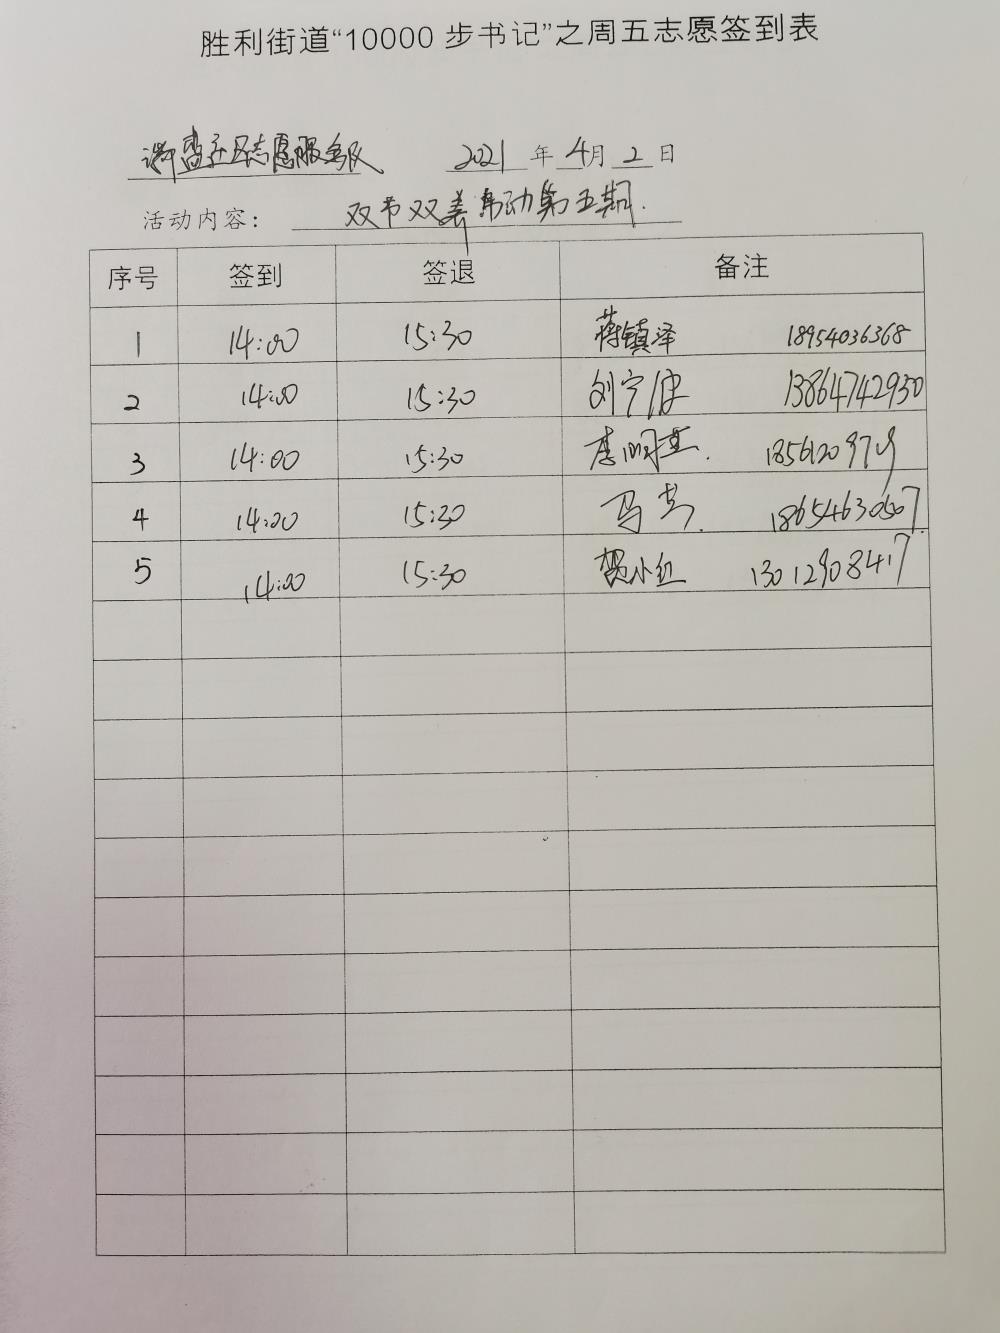 胜利街道“10000 步书记”之周五志愿签到表
社区志愿服务队 2021 年 4月 2 日
活动内容: 双节双养活动第五期.
序号 签到 签退 备注
1 14:00 15:30 蒋镇泽 18954036368
2 14:00 15:30 刘宁 13864742930
3 14:00 15:30 李明 
4 14:00 15:30 马 18654630507
5 14:00 15:30 贺小红 13012908417